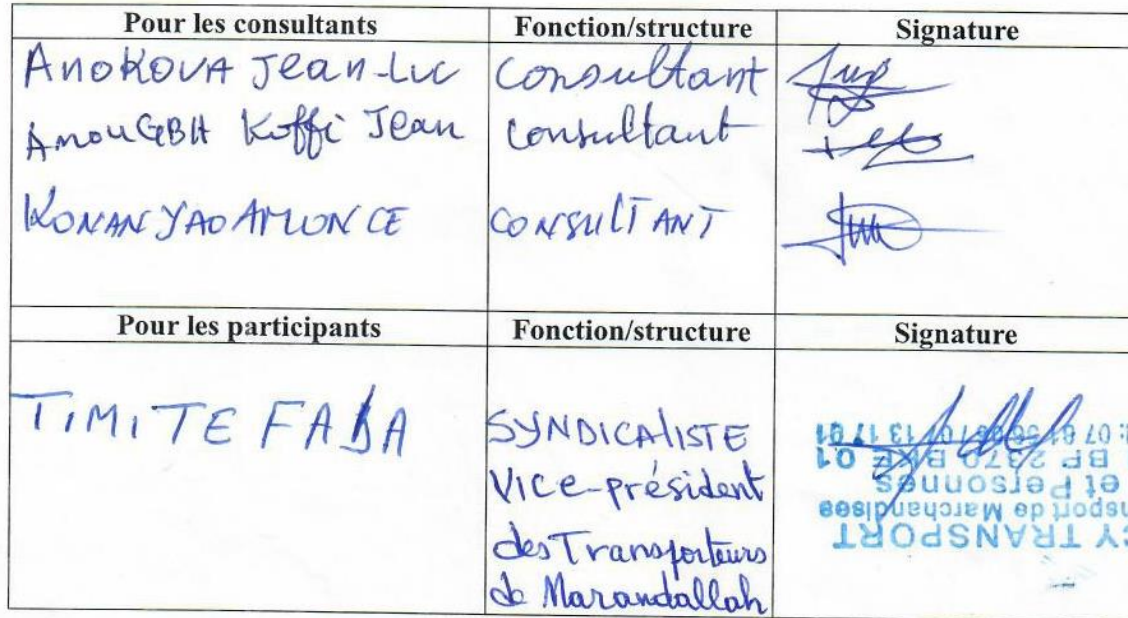 Pour les consultants Fonction/structure Signature
ANOKOUA Jean-Luc Consultant
AnouGBH Koffi Jean Consultant
KONAN YAO AMON CE CONSULTANT
Pour les participants Fonction/structure Signature
TIMITE FABA SYNDICALISTE
Vice-président
des Transporteurs
de Marandallah
TRANSPORT
de Marchandises
et Personnes
BP 2370 BKE 01